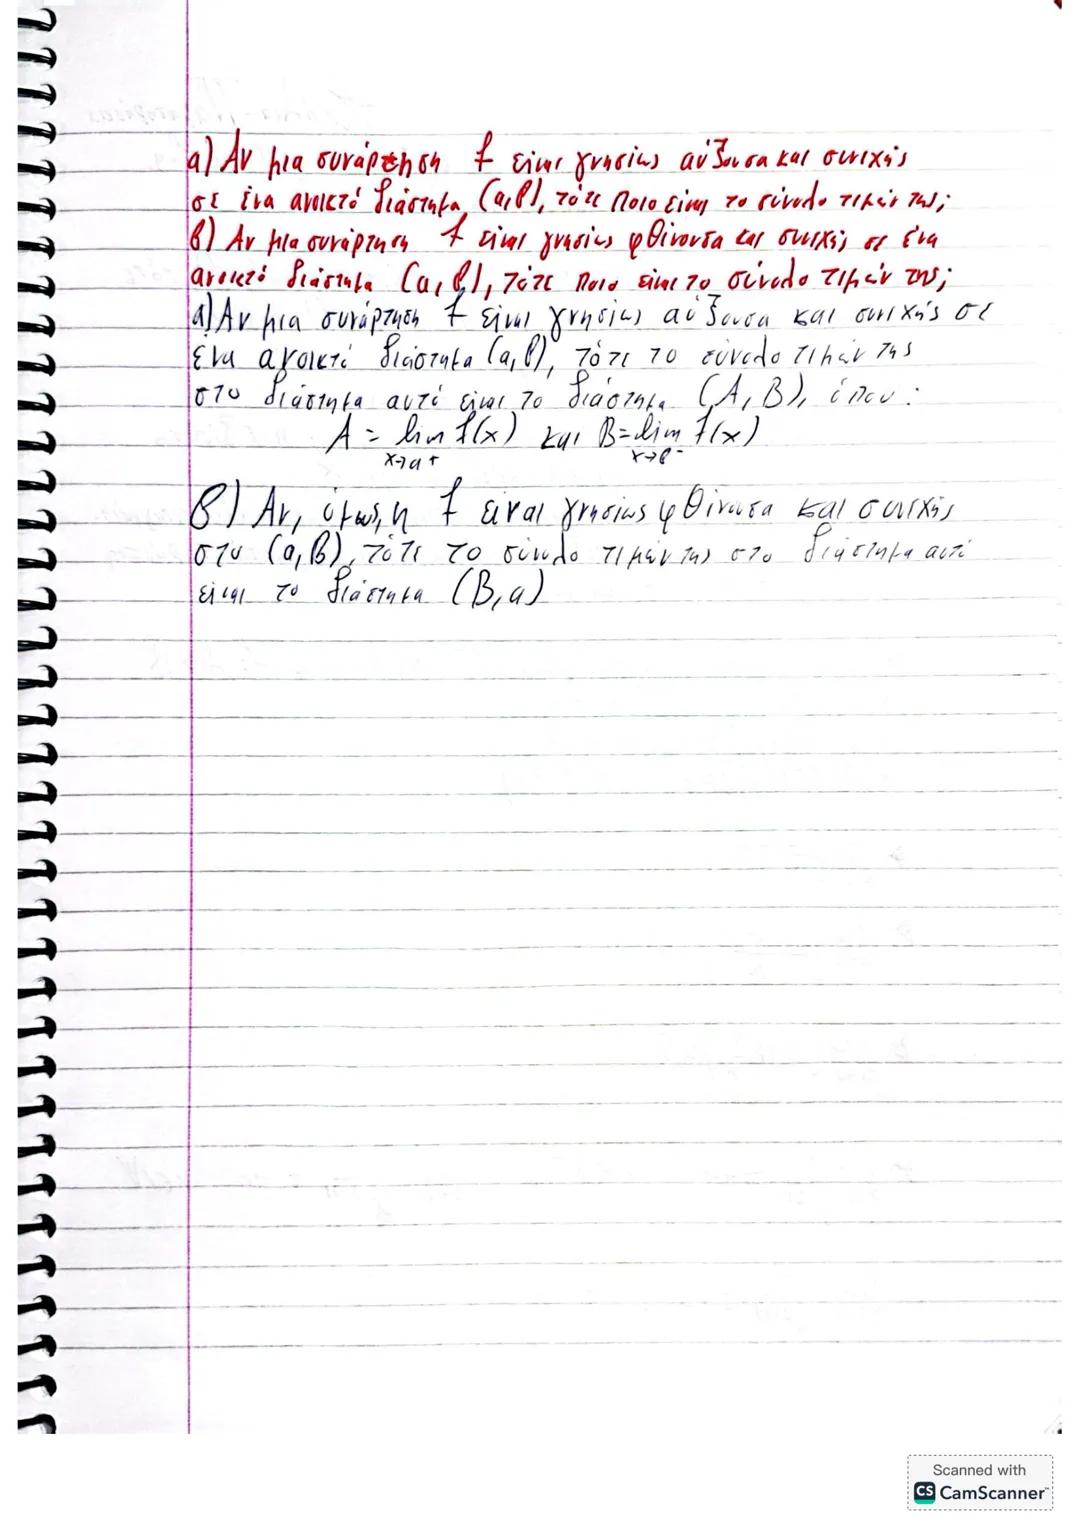 α) Αν μια συνάρτηση f είναι γνησίως αύξουσα και συνεχής
σε ένα ανοικτό διάστημα (α,β), τότε ποιο είναι το σύνολο τιμών της;
β) Αν μια συνάρτηση f είναι γνησίως φθίνουσα και συνεχής σε ένα
ανοικτό διάστημα (α,β), τότε ποιο είναι το σύνολο τιμών της;
α) Αν μια συνάρτηση f είναι γνησίως αύξουσα και συνεχής σε
ένα ανοικτό διάστημα (α,β), τότε το σύνολο τιμών της
στο διάστημα αυτό είναι το διάστημα (Α,Β), όπου:
Α = lim f(x) και Β = lim f(x)
x→α+ x→β-
β) Αν, όμως, η f είναι γνησίως φθίνουσα και συνεχής
στο (α,β), τότε το σύνολο τιμών της στο διάστημα αυτό
είναι το διάστημα (Β,α)
Scanned with
CS CamScanner